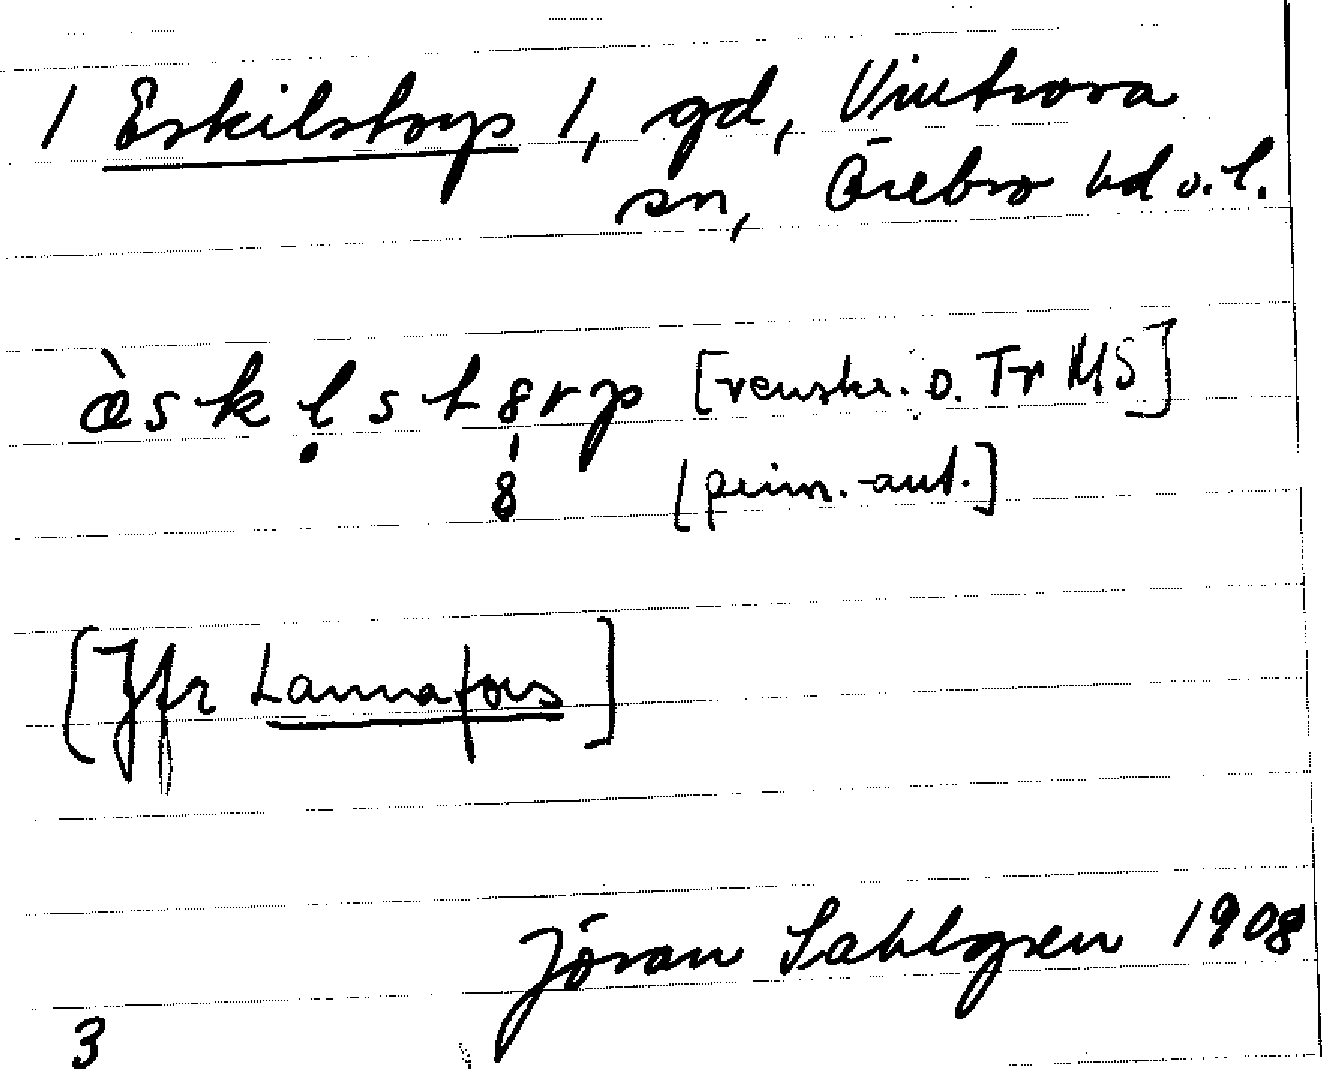 1 Eskilstorp 1, gd, Vintrosa
sn, Örebro hd o. l.
æ̀skl̥st8rp [renskr. o. Tr MS]
8 [prim.-aut.]
[Jfr Lannafors]
Jöran Sahlgren 1908
3